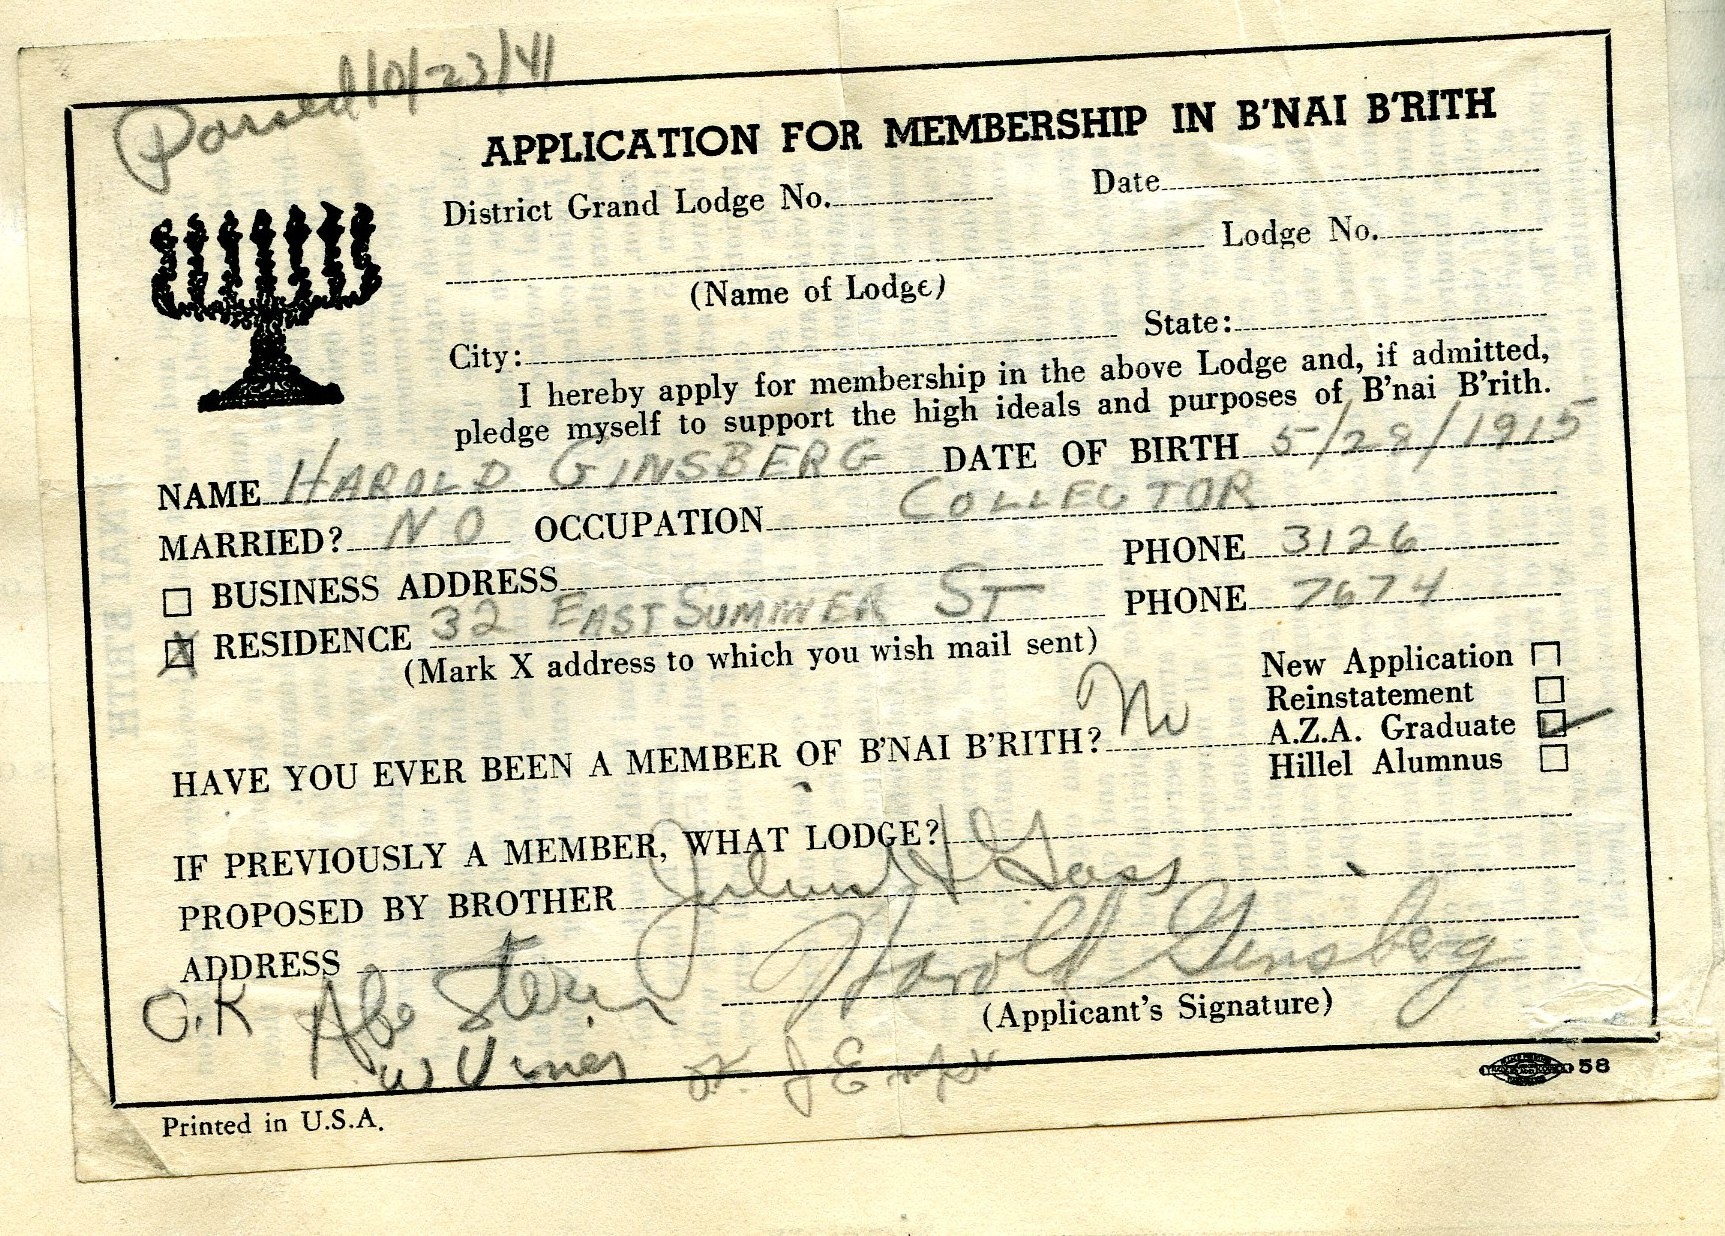 Passed 10/23/41
APPLICATION FOR MEMBERSHIP IN B'NAI B'RITH
District Grand Lodge No. Date
Lodge No.
(Name of Lodge)
City: State:
I hereby apply for membership in the above Lodge and, if admitted,
pledge myself to support the high ideals and purposes of B'nai B'rith.
NAME HAROLD GINSBERG DATE OF BIRTH 5/28/1915
MARRIED? NO OCCUPATION COLLECTOR
BUSINESS ADDRESS PHONE 3126
X RESIDENCE 32 EAST SUMMER ST PHONE 7674
(Mark X address to which you wish mail sent)
New Application
Reinstatement
HAVE YOU EVER BEEN A MEMBER OF B'NAI B'RITH? No A.Z.A. Graduate ✓
Hillel Alumnus
IF PREVIOUSLY A MEMBER, WHAT LODGE?
PROPOSED BY BROTHER Julius H Goss
ADDRESS
O.K Abe Stein Harold Ginsberg
(Applicant's Signature)
W Viner OK. J E
58
Printed in U.S.A.